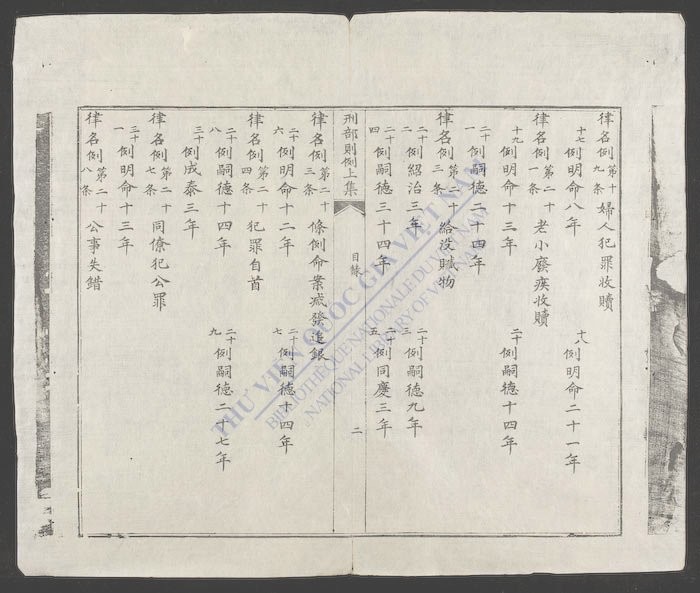 律名例第十九条婦人犯罪收贖
十七例明命八年 十八例明命二十一年
律名例第二十一条老小廢疾收贖
十九例明命十三年 二十例嗣德十四年
二十一例嗣德二十四年
律名例第二十三条給没贓物
二十二例紹治三年 二十三例嗣德九年
二十四例嗣德三十四年 二十五例同慶三年
刑部則例上集 目錄 二
律名例第二十三条條例命案减發追銀
二十六例明命十二年 二十七例嗣德十四年
律名例第二十四条犯罪自首
二十八例嗣德十四年 二十九例嗣德二十七年
三十例成泰三年
律名例第二十七条同僚犯公罪
三十一例明命十三年
律名例第二十八条公事失錯
THƯ VIỆN QUỐC GIA VIỆT NAM
BIBLIOTHÈQUE NATIONALE DU VIETNAM
NATIONAL LIBRARY OF VIETNAM